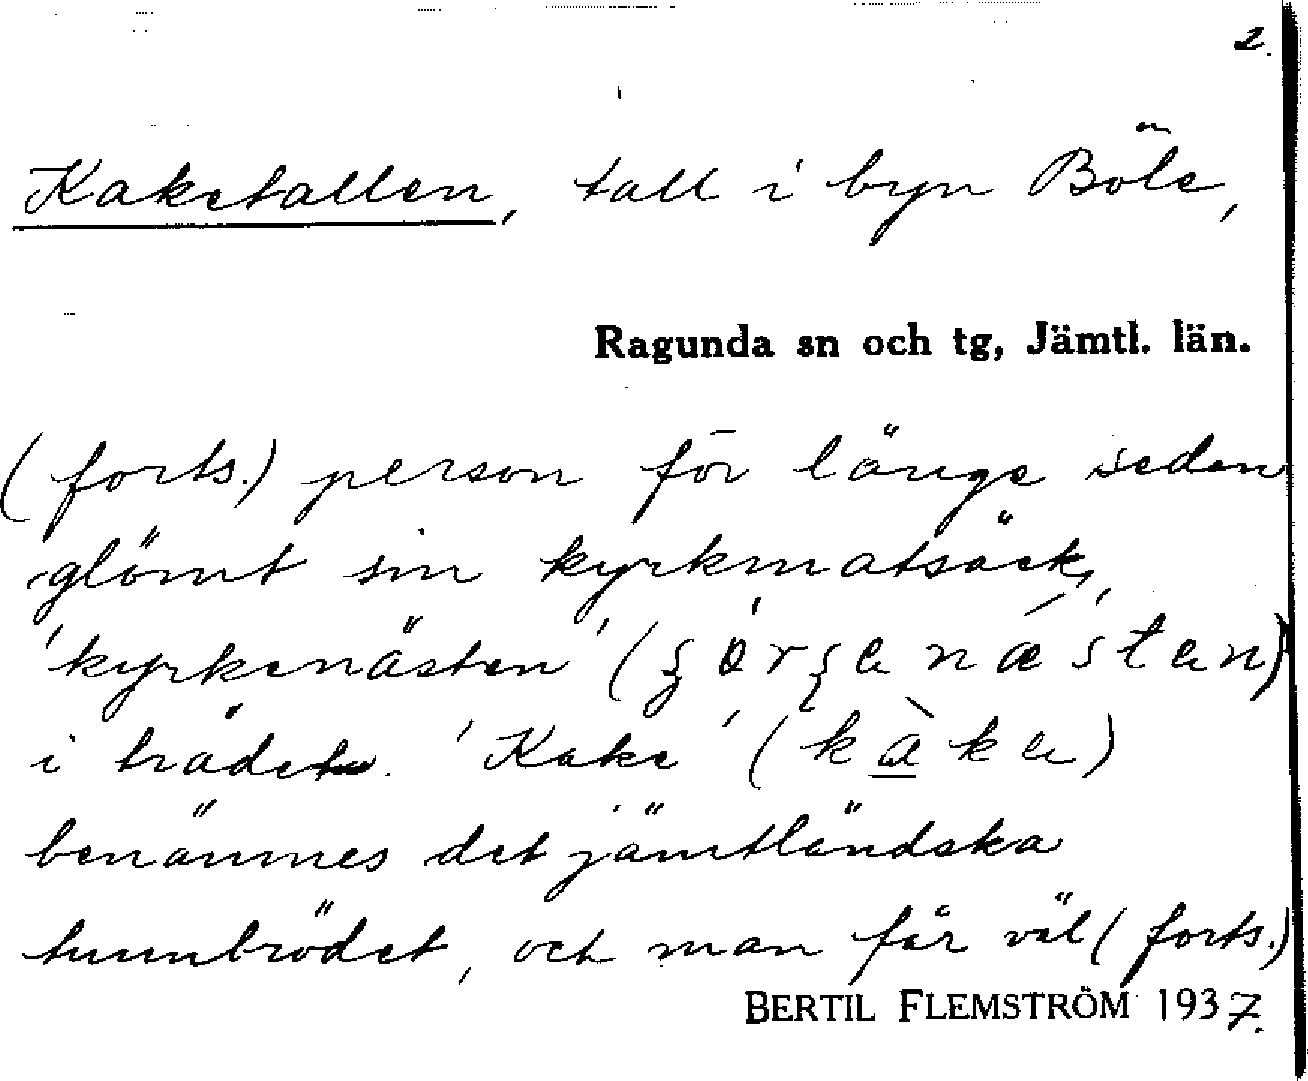 2.
Kaketallen, tall i byn Böle,
Ragunda sn och tg, Jämtl. län.
(forts.) person för länge sedan
glömt sin kyrkmatsäck,
'kyrkenästen'
i trädet. 'Kake'
benämnes det jämtländska
tunnbrödet, och man får väl (forts.)
BERTIL FLEMSTRÖM 1937.